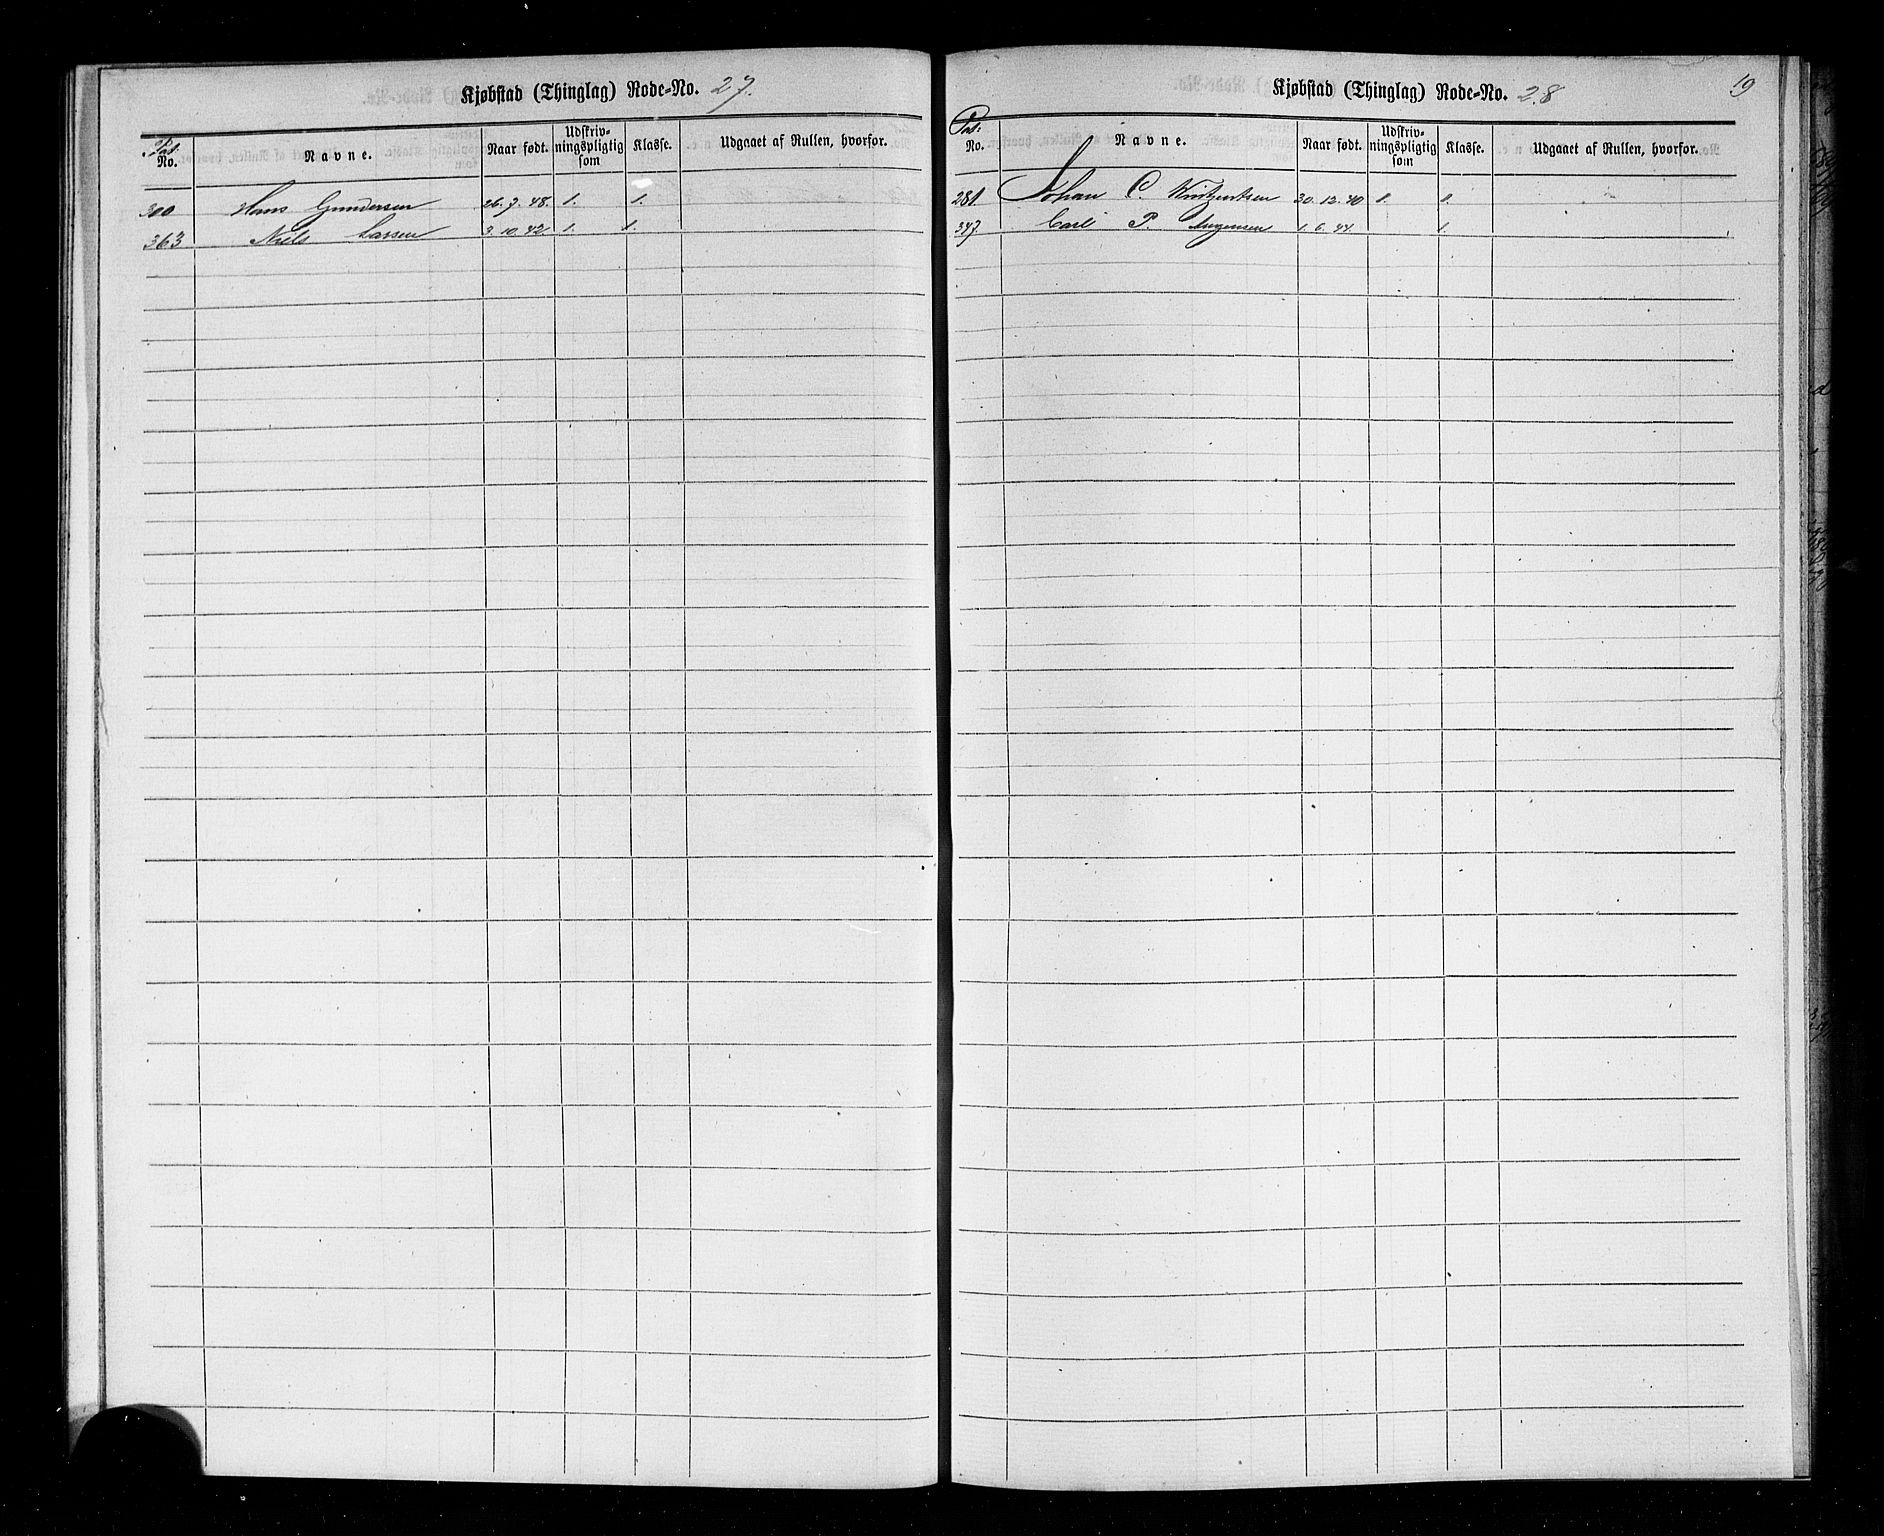 Kjøbstad (Thinglag) Rode-No. 27.
Pat. No. Navne. Naar født. Udskriv-ningspligtig som Klasse. Udgaaet af Rullen, hvorfor.
300 Hans Gundersen 26.7.48. 1. 1.
363 Niels Larsen 3.10.42 1. 1.
19
Kjøbstad (Thinglag) Rode-No. 28
Pat. No. Navne. Naar født. Udskriv-ningspligtig som Klasse. Udgaaet af Rullen, hvorfor.
281 Johan C. 30.12.40 1. 1.
347. Carl P. Jørgensen 1.6.44. 1.